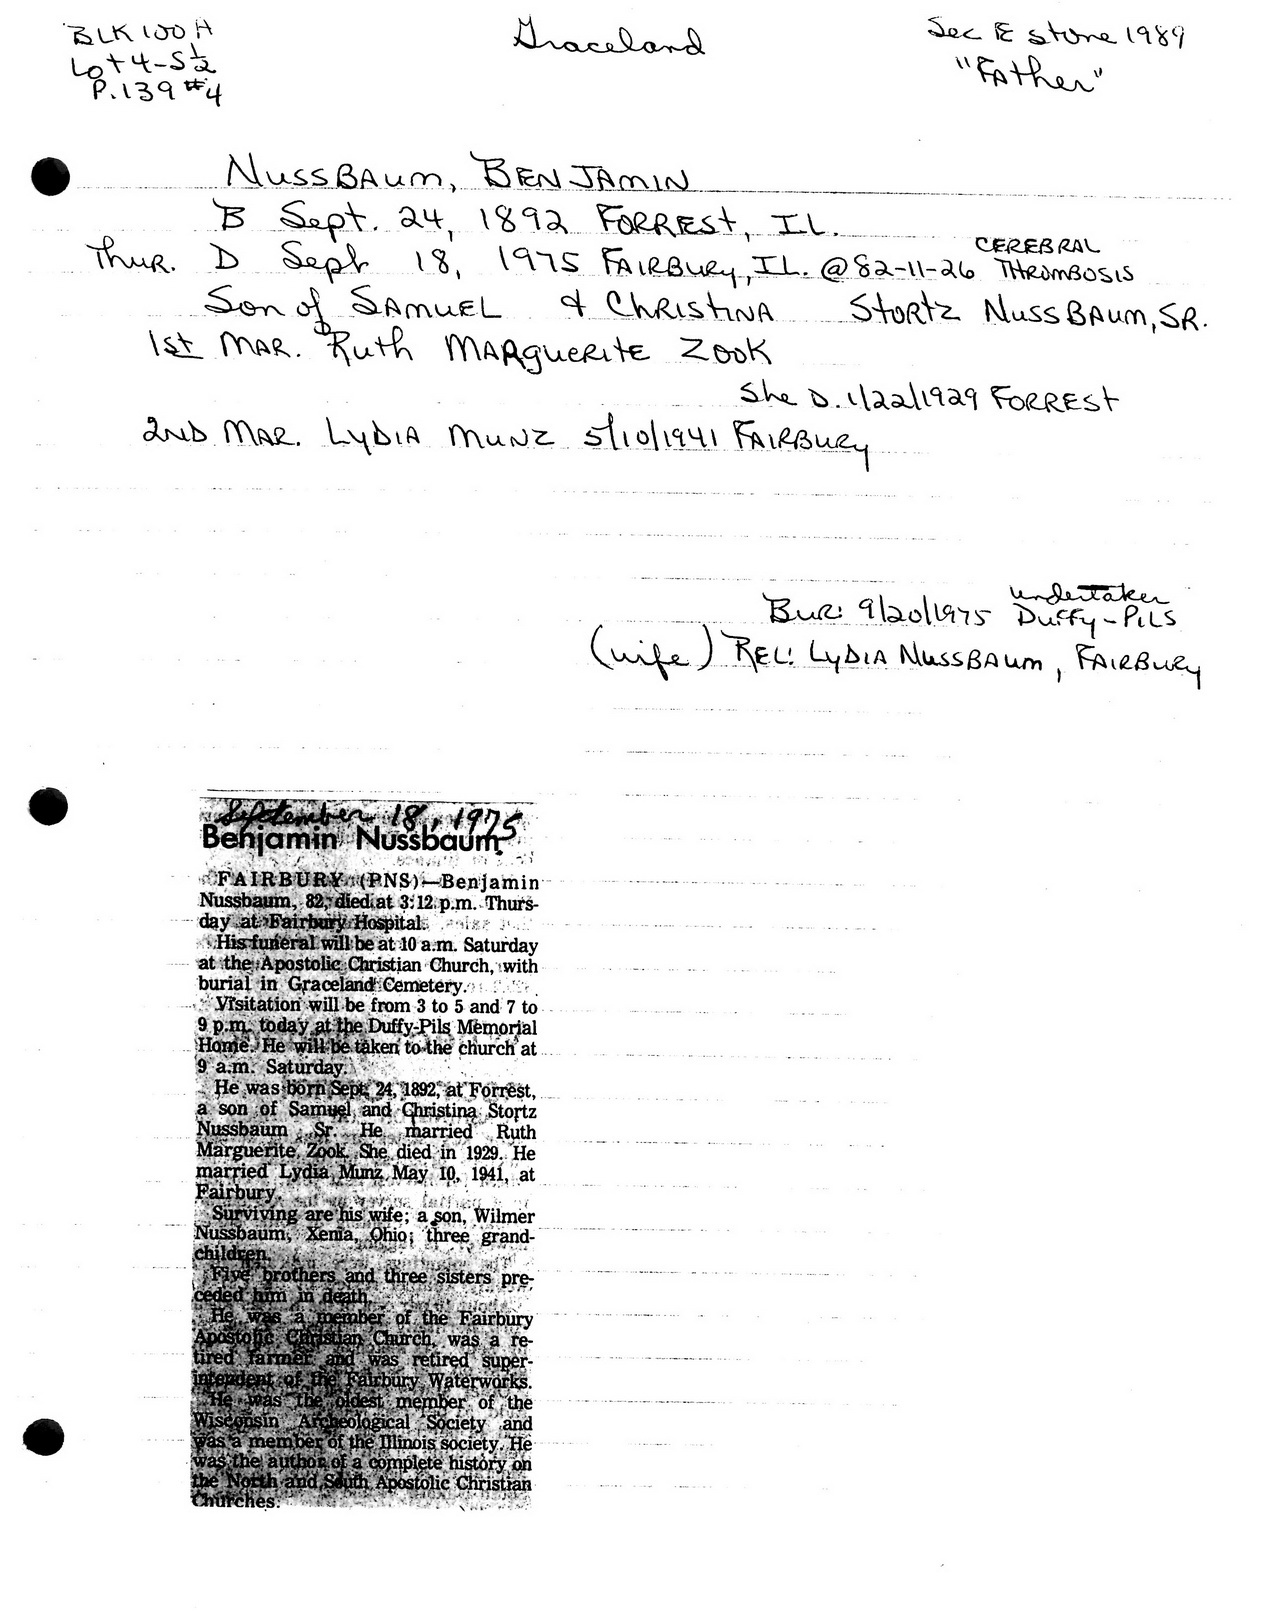 BLK 100 A
Lot 4-S ½
P. 139 #4
Graceland
Sec E stone 1989
"Father"
NUSSBAUM, BENJAMIN
B Sept. 24, 1892 FORREST, IL.
Thur. D Sept 18, 1975 FAIRBURY, IL. @ 82-11-26 CEREBRAL THROMBOSIS
Son of SAMUEL & CHRISTINA STORTZ NUSSBAUM, SR.
1st MAR. Ruth MARGUERITE ZOOK
She D. 1/22/1929 FORREST
2ND MAR. LYDIA MUNZ 5/10/1941 FAIRBURY
undertaker
BUR: 9/20/1975 DUFFY-PILS
(wife) REL: LYDIA NUSSBAUM, FAIRBURY
September 18, 1975
Benjamin Nussbaum
FAIRBURY (PNS)—Benjamin
Nussbaum, 82, died at 3:12 p.m. Thurs-
day at Fairbury Hospital.
His funeral will be at 10 a.m. Saturday
at the Apostolic Christian Church, with
burial in Graceland Cemetery.
Visitation will be from 3 to 5 and 7 to
9 p.m. today at the Duffy-Pils Memorial
Home. He will be taken to the church at
9 a.m. Saturday.
He was born Sept. 24, 1892, at Forrest,
a son of Samuel and Christina Stortz
Nussbaum Sr. He married Ruth
Marguerite Zook. She died in 1929. He
married Lydia Munz May 10, 1941, at
Fairbury.
Surviving are his wife; a son, Wilmer
Nussbaum, Xenia, Ohio; three grand-
children.
Five brothers and three sisters pre-
ceded him in death.
He was a member of the Fairbury
Apostolic Christian Church, was a re-
tired farmer and was retired super-
intendent of the Fairbury Waterworks.
He was the oldest member of the
Wisconsin Archeological Society and
was a member of the Illinois society. He
was the author of a complete history on
the North and South Apostolic Christian
Churches.